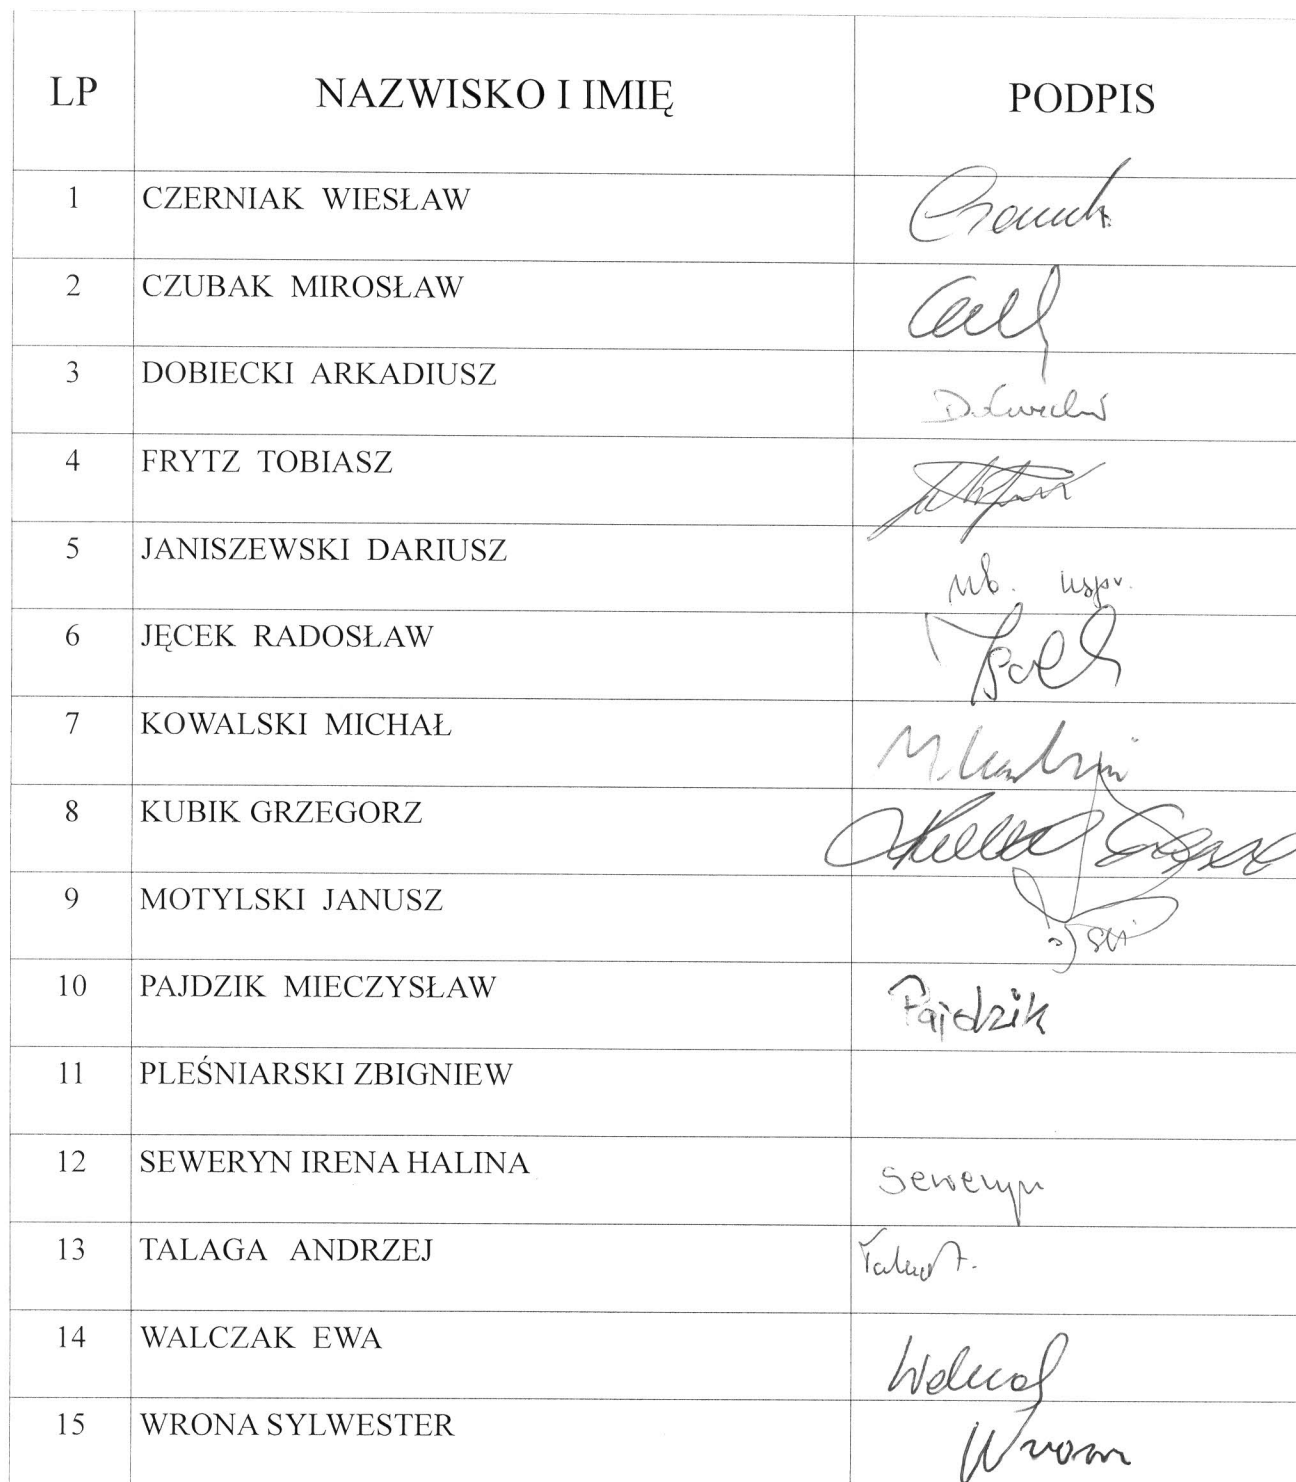 LP NAZWISKO I IMIĘ PODPIS
1 CZERNIAK WIESŁAW
2 CZUBAK MIROSŁAW
3 DOBIECKI ARKADIUSZ
4 FRYTZ TOBIASZ
5 JANISZEWSKI DARIUSZ nb. uspr.
6 JĘCEK RADOSŁAW
7 KOWALSKI MICHAŁ
8 KUBIK GRZEGORZ
9 MOTYLSKI JANUSZ
10 PAJDZIK MIECZYSŁAW Pajdzik
11 PLEŚNIARSKI ZBIGNIEW
12 SEWERYN IRENA HALINA Seweryn
13 TALAGA ANDRZEJ
14 WALCZAK EWA
15 WRONA SYLWESTER Wrona